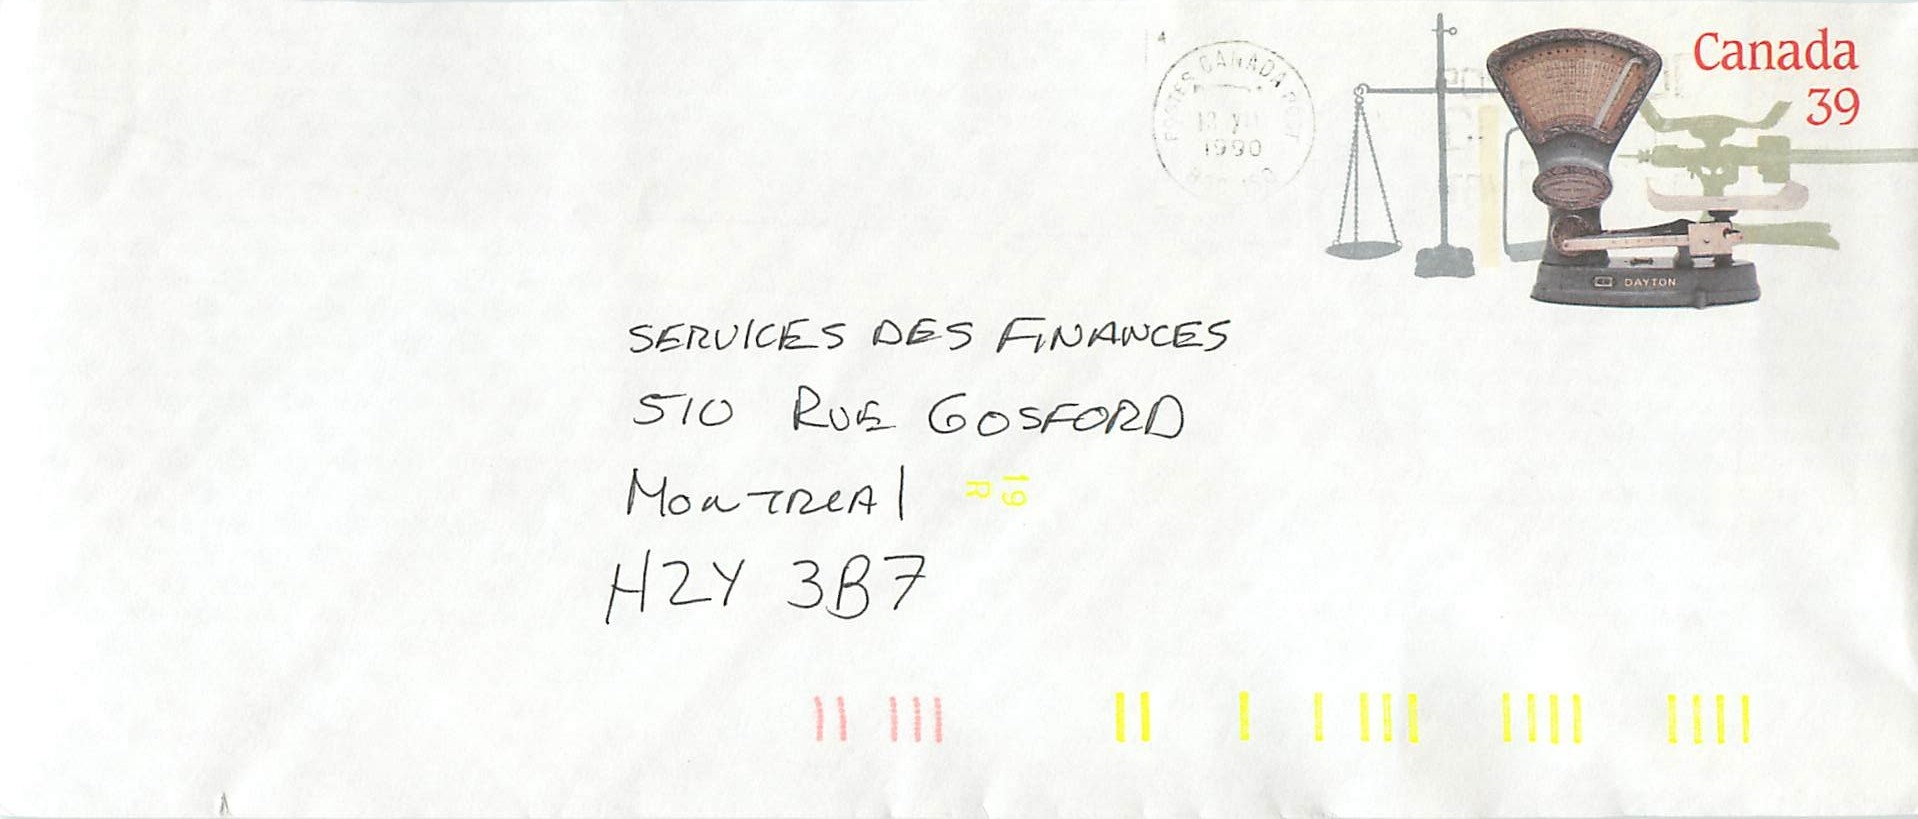 4
POSTES CANADA POST
1990
Canada
39
DAYTON
SERVICES DES FINANCES
510 RUE GOSFORD
MONTREAl
19
R
H2Y 3B7